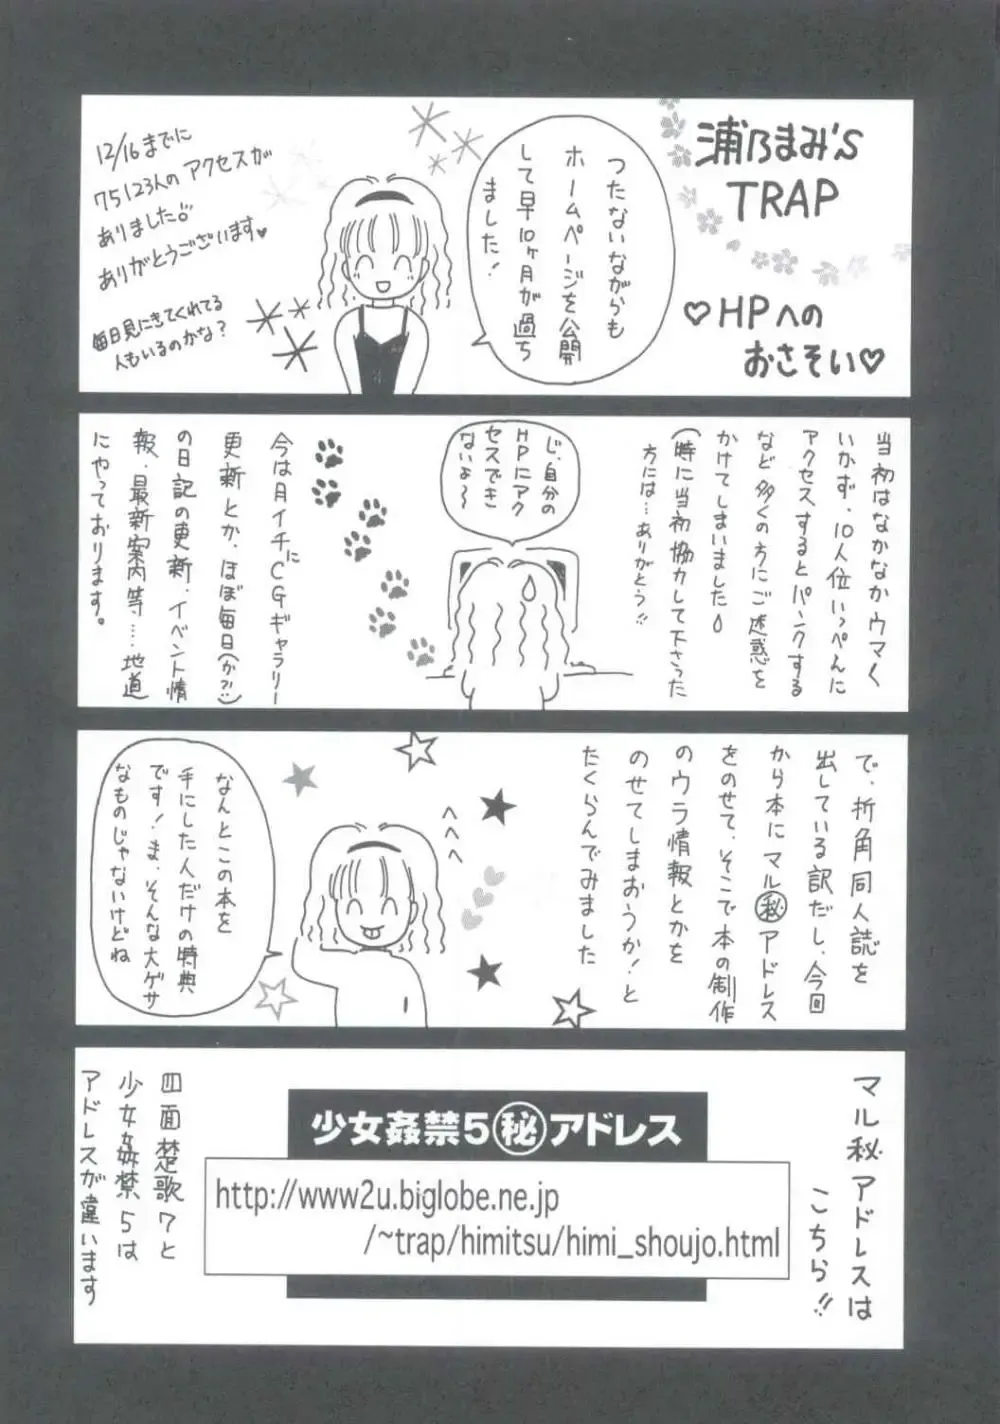 浦乃まみ's
TRAP
♡HPへの
おさそい♡
つたないながらも
ホームページを公開
して早10ヶ月が過ち
ました!
12/16までに
75123人のアクセスが
ありました
ありがとうございます♥
毎日見にきてくれてる
人もいるのかな?
当初はなかなかウマく
いかず、10人位いっぺんに
アクセスするとパンクする
など多くの方にご迷惑を
かけてしまいました
(特に当初協力して下さった
方には…ありがとう!!
じ、自分の
HPにアク
セスでき
ないよ〜
今は月イチにCGギャラリー
更新とか、ほぼ毎日(か?!)
の日記の更新、イベント情
報、最新案内等……地道
にやっております。
で、折角同人誌を
出している訳だし、今回
から本にマル㊙アドレス
をのせて、そこで本の制作
のウラ情報とかを
のせてしまおうか!と
たくらんでみました
へへへ
なんとこの本を
手にした人だけの特典
です!ま、そんな大ゲサ
なものじゃないけどね
マル秘アドレスは
こちら!!
少女姦禁5㊙アドレス
http://www2u.biglobe.ne.jp
/~trap/himitsu/himi_shoujo.html
四面楚歌7と
少女姦禁5は
アドレスが違います